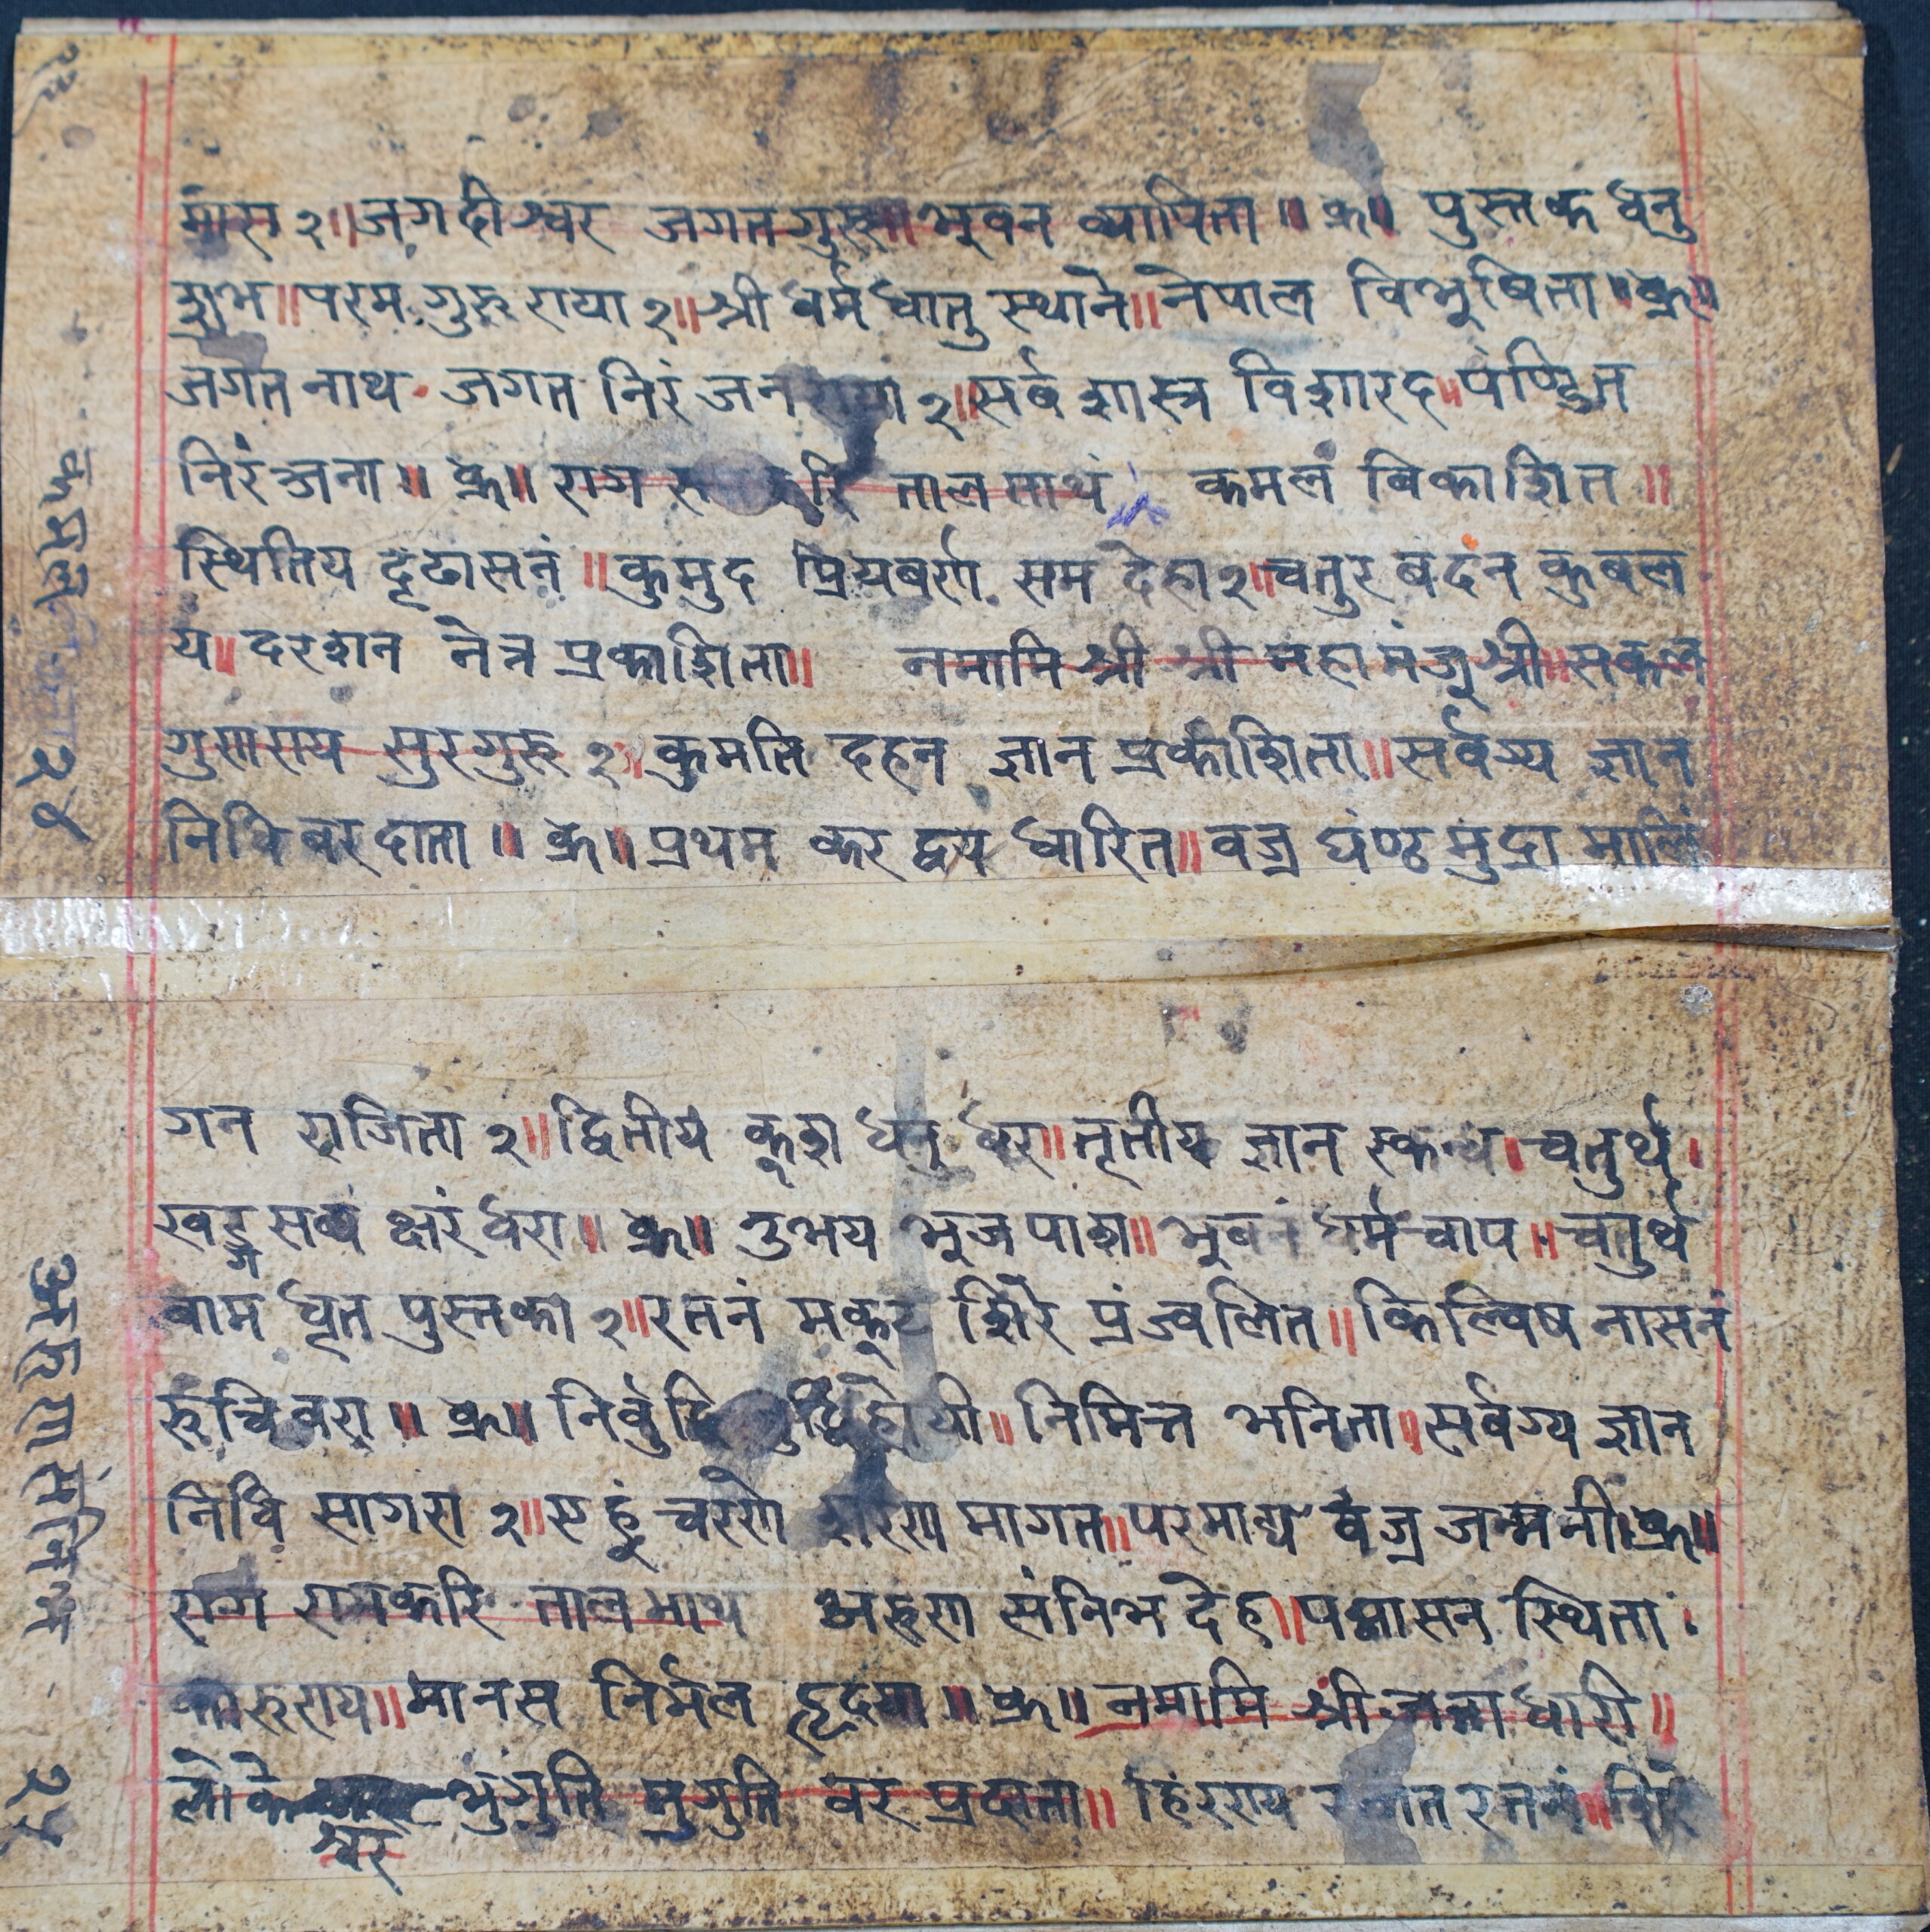 मांस २॥ जगदीश्वर जगतगुरु॥ भूवन व्यापिता ॥ क्र॥ पुस्तक धनु
शुभ॥ परम गुरु राया २॥ श्री धर्म धातु स्थाने॥ नेपाल विभूषिता ॥ क्र॥
जगत नाथ जगत निरंजन २॥ सर्व शास्त्र विशारद॥ पण्डित
निरंञ्जना ॥ क्र॥ राग ताल माथं कमलं विकाशित ॥
स्थितिय दृढासनं ॥ कुमुद प्रियबर्ण सम देहा २॥ चतुर बदंन कुबल
य॥ दरशन नेत्र प्रकाशिता॥ नमामि श्री श्री महा मंजुश्री॥ सकल
गुणराय सुरगुरु २॥ कुमति दहन ज्ञान प्रकाशिता॥ सर्वग्य ज्ञान
निधि बर दाता ॥ क्र॥ प्रथम कर द्वय धारित॥ वज्र घंण्ठ मुद्रा मालिं
कमलं २४
गन राजिता २॥ द्वितीय कूश धनु धर॥ तृतीय ज्ञान स्कन्ध। चतुर्थ।
खड्ग सव्य क्षरं धरा॥ क्र॥ उभय भूज पाश॥ भुबनं धर्म चाप ॥ चतुर्थ
बाम धृत पुस्तका २॥ रतनं मकूट शिरे प्रंज्वलित॥ किल्विष नासनं
रुचि वरा ॥ क्र॥ निर्वुद्धि होयी॥ निमित्त भनिता॥ सर्वग्य ज्ञान
निधि सागरा २॥ ए हूं चरणे शरण मागत॥ परमाद्य वज्र जन्मनी क्र॥
राग रामकरि ताल माथ अरुण संनिभ देह॥ पद्मासन स्थिता
कारुराय॥ मानस निर्मल हृदया ॥ क्र॥ नमामि श्री धारी॥
लोकेश्वर भुंगुति मुगुति वर प्रदाता॥ हिरराय रतनं॥ शिरे
अरुण संनिभ - २५